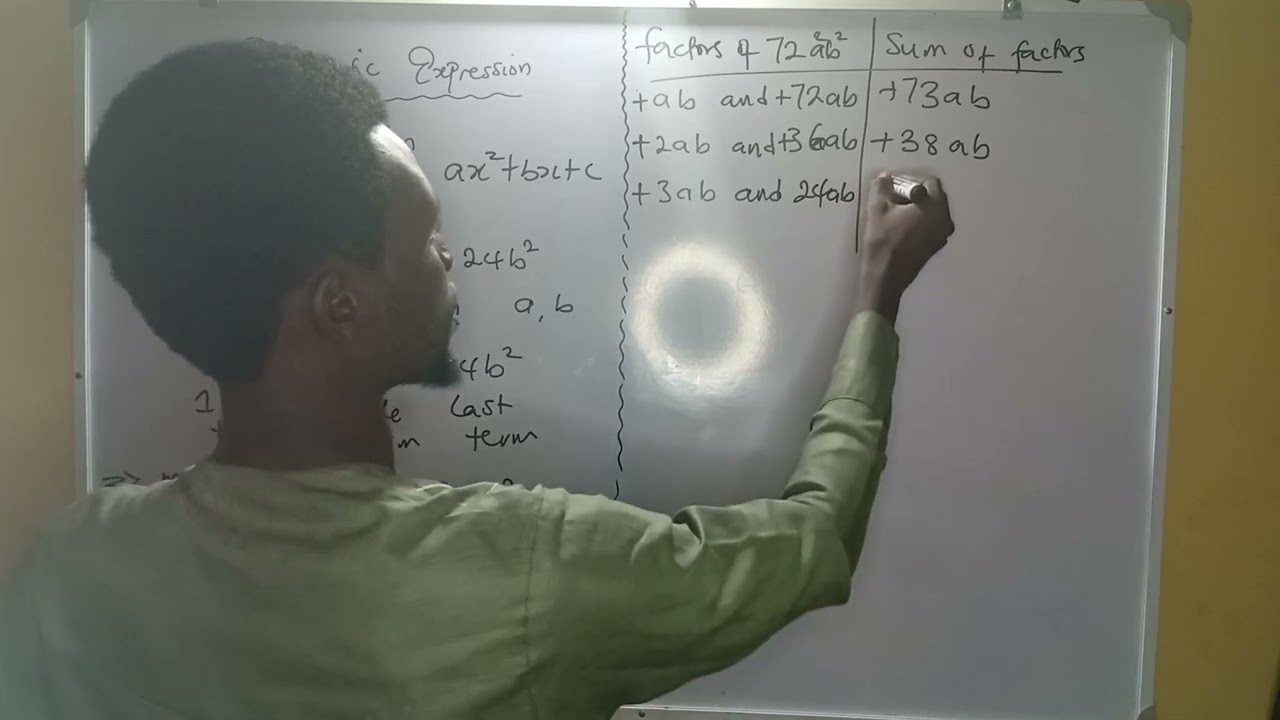 ic Expression
ax²+bx+c
24b²
a, b
4b²
1
Last
term
factors of 72a²b² Sum of factors
+ab and +72ab +73ab
+2ab and +36ab +38ab
+3ab and 24ab